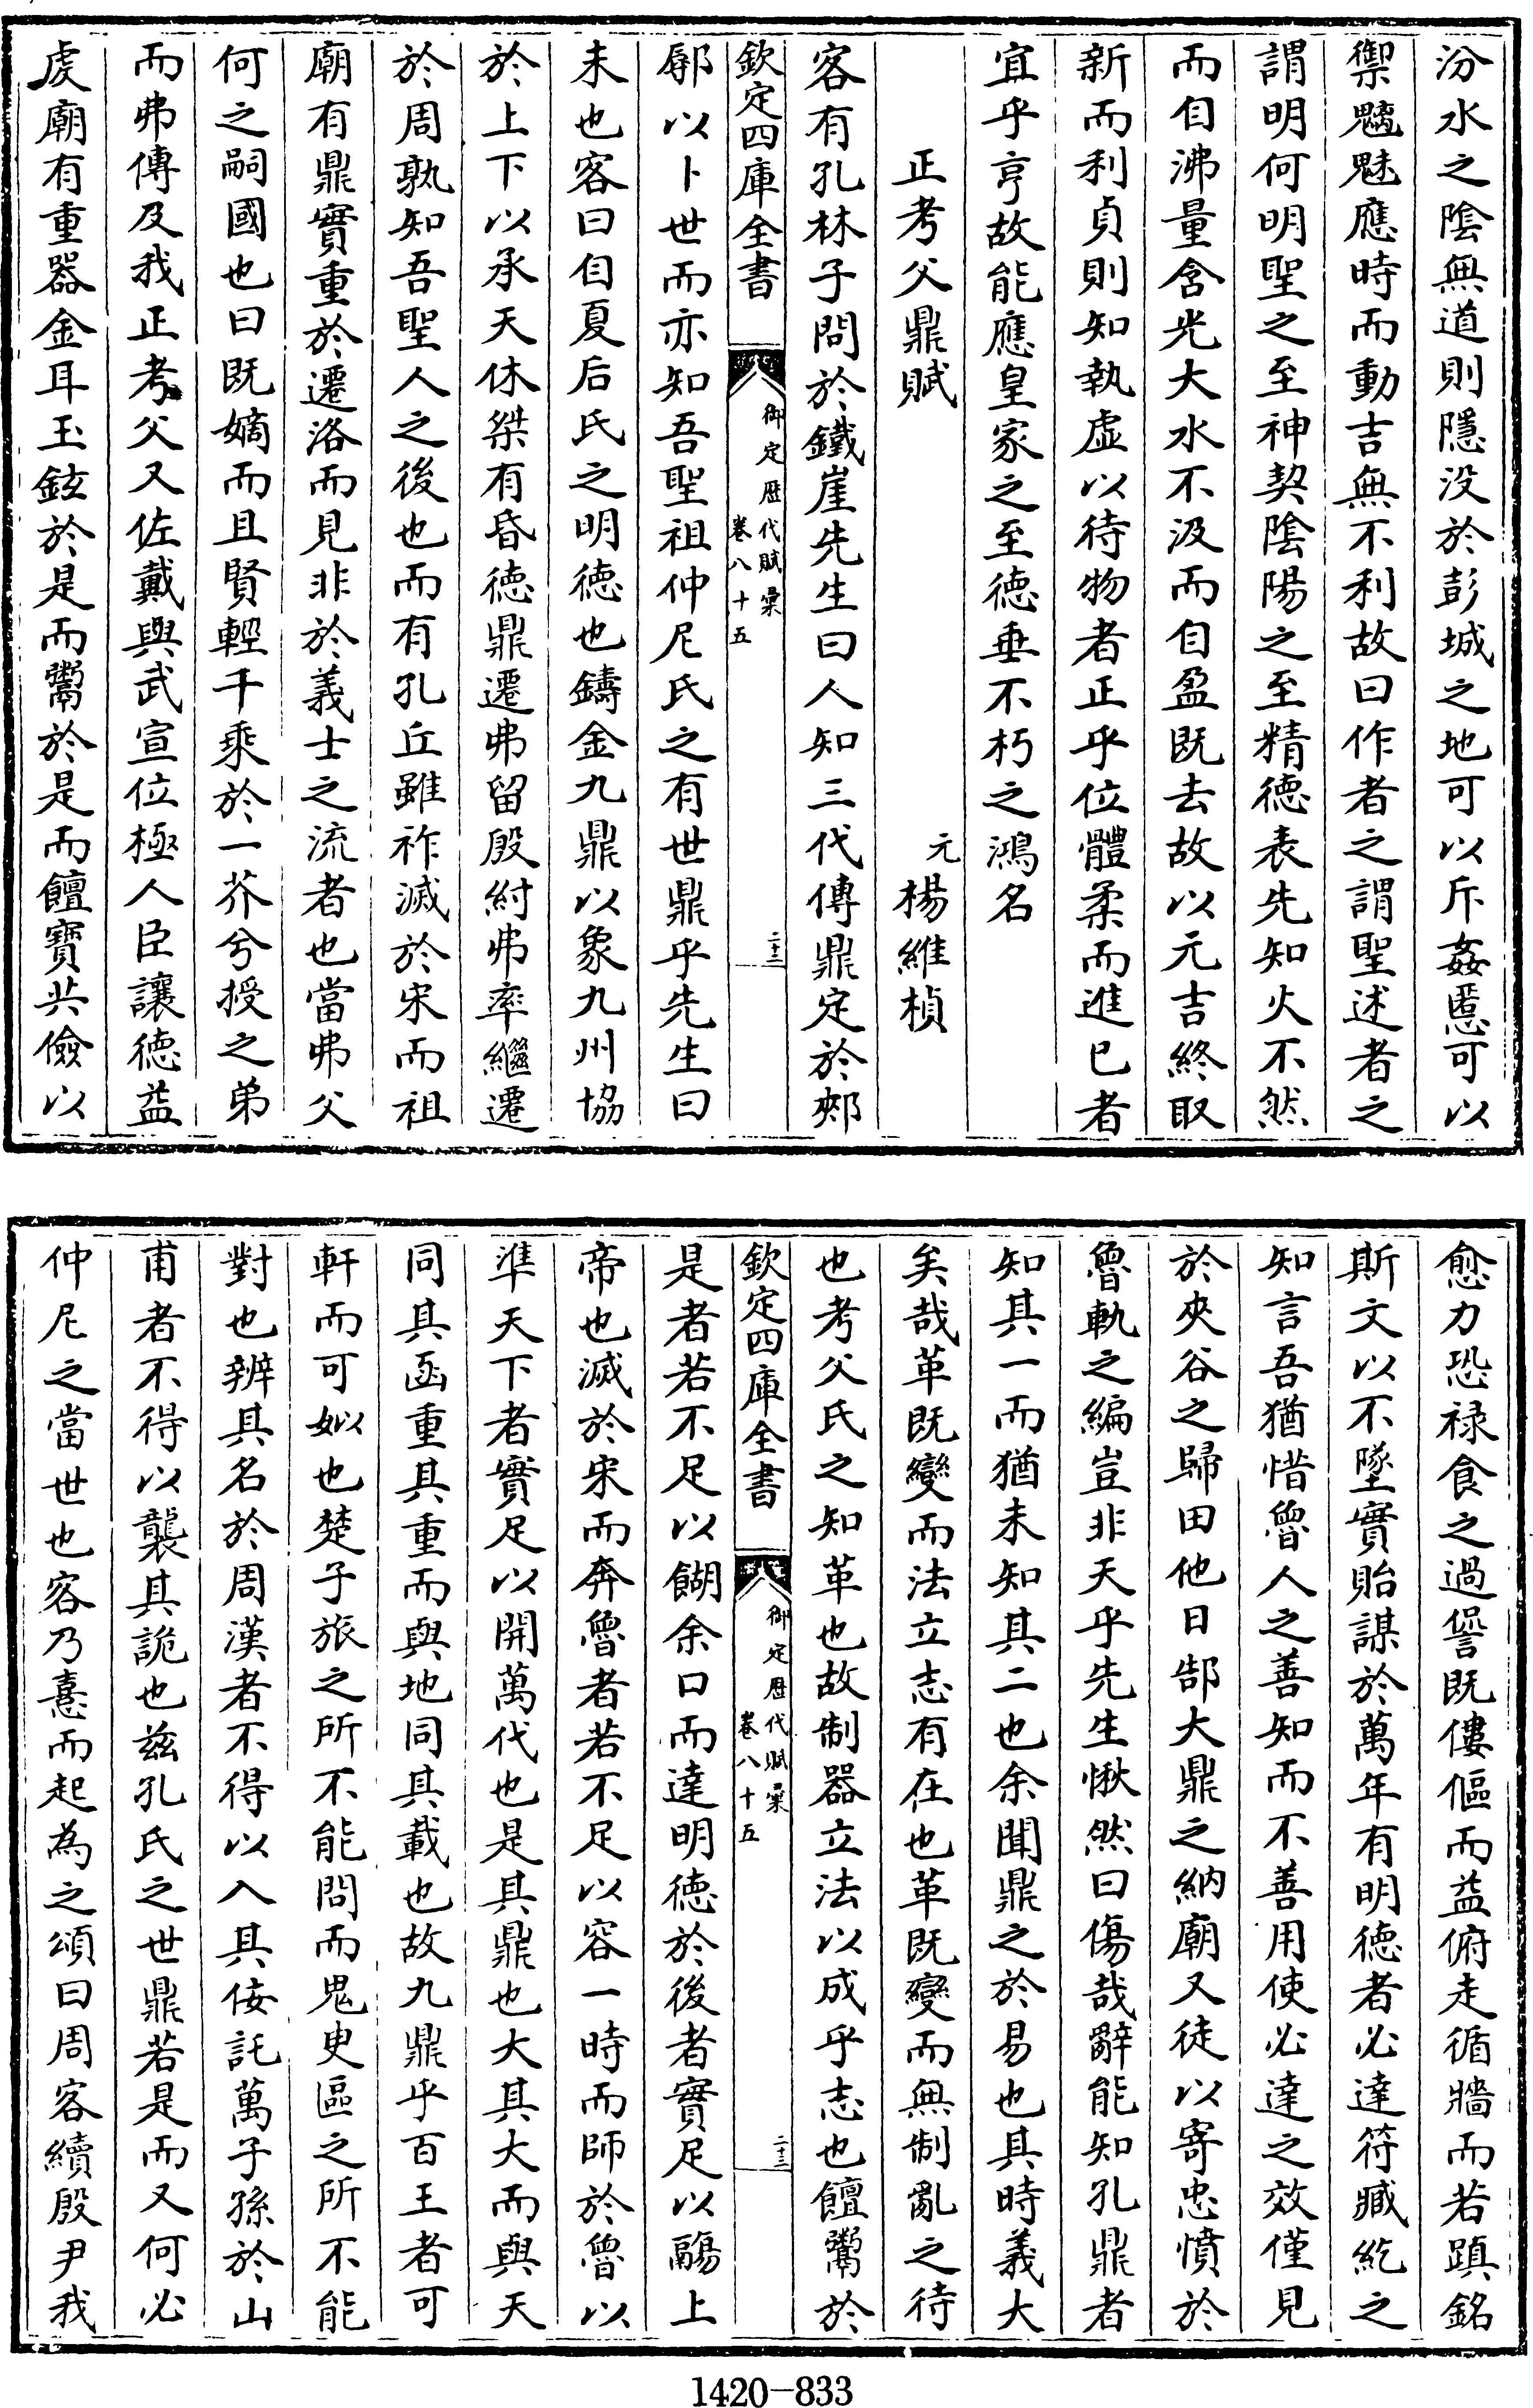 汾水之隂無道則隱没於彭城之地可以斥姦慝可以
禦魑魅應時而動吉無不利故曰作者之謂聖述者之
謂明何明聖之至神契隂陽之至精徳表先知火不然
而自沸量含光大水不汲而自盈既去故以元吉終取
新而利貞則知執虚以待物者正乎位體柔而進已者
宜乎亨故能應皇家之至徳垂不朽之鴻名
正考父鼎賦
元楊維楨
客有孔林子問於鐵崖先生曰人知三代傳鼎定於郟
欽定四庫全書
御定歴代賦彚
卷八十五
二十三
鄏以卜世而亦知吾聖祖仲尼氏之有世鼎乎先生曰
未也客曰自夏后氏之明徳也鑄金九鼎以象九州協
於上下以承天休桀有昏徳鼎遷弗留殷紂弗率繼遷
於周孰知吾聖人之後也而有孔丘雖祚滅於宋而祖
廟有鼎實重於遷洛而見非於義士之流者也當弗父
何之嗣國也曰既嫡而且賢輕千乘於一芥兮授之弟
而弗傳及我正考父又佐戴與武宣位極人臣讓徳益
虔廟有重器金耳玉鉉於是而鬻於是而饘寳共儉以
愈力恐禄食之過諐既僂傴而益俯走循牆而若蹎銘
斯文以不墜實貽謀於萬年有明徳者必達符臧紇之
知言吾猶惜魯人之善知而不善用使必達之效僅見
於夾谷之歸田他日郜大鼎之納廟又徒以寄忠憤於
魯軌之編豈非天乎先生愀然曰傷哉辭能知孔鼎者
知其一而猶未知其二也余聞鼎之於易也其時義大
矣哉革既變而法立志有在也革既變而無制亂之待
也考父氏之知革也故制器立法以成乎志也饘鬻於
欽定四庫全書
御定歴代賦彚
卷八十五
二十三
是者若不足以餬余口而達明徳於後者實足以鬺上
帝也滅於宋而奔魯者若不足以容一時而師於魯以
準天下者實足以開萬代也是其鼎也大其大而與天
同其函重其重而與地同其載也故九鼎乎百王者可
軒而可姒也楚子旅之所不能問而鬼㬰區之所不能
對也辨其名於周漢者不得以入其佞託萬子孫於山
甫者不得以襲其詭也兹孔氏之世鼎若是而又何必
仲尼之當世也客乃憙而起為之頌曰周客續殷尹我
1420-833